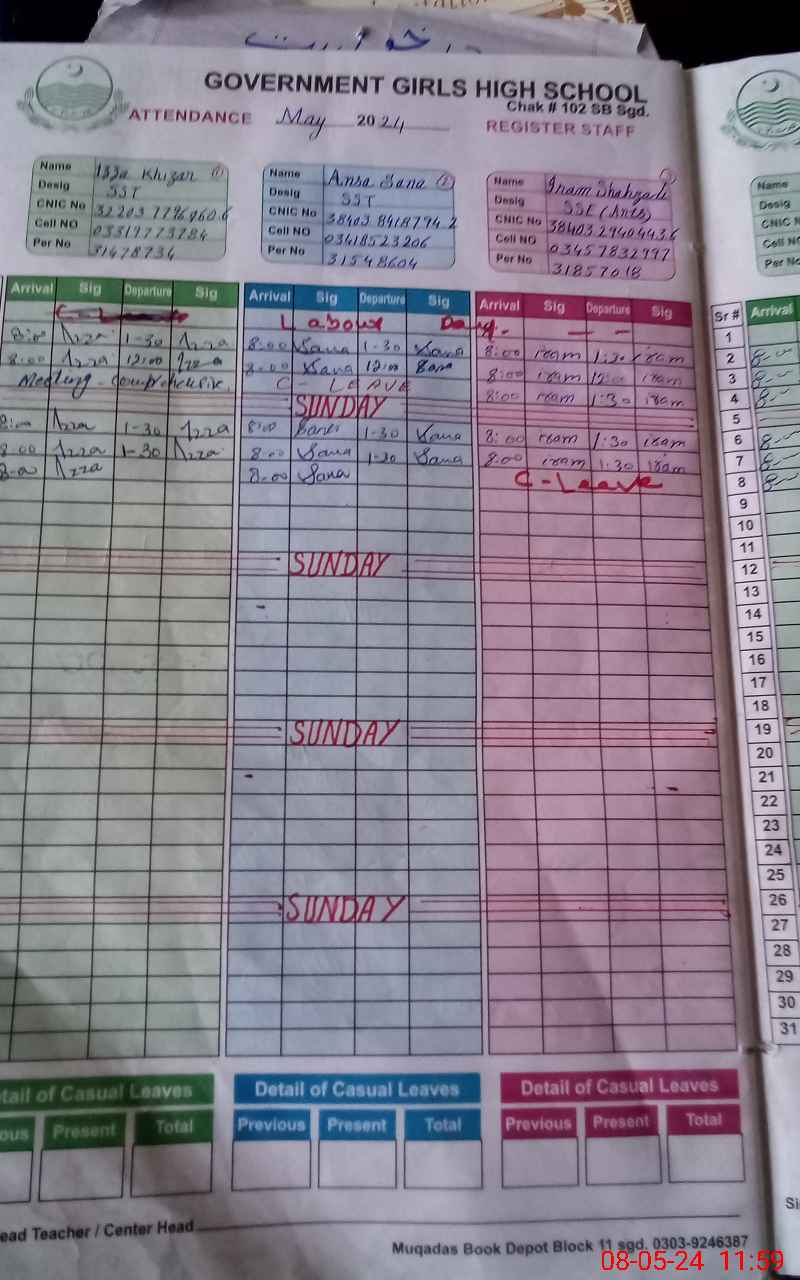 GOVERNMENT GIRLS HIGH SCHOOL
Chak # 102 SB Sgd.
ATTENDANCE May 2024 REGISTER STAFF
Name Izza Khizar ①
Desig SST
CNIC No
Cell NO 03317773784
Per No 31478734
Name Ansa Sana ②
Desig SST
CNIC No 38403 8418794 2
Cell NO 03418523206
Per No 31548604
Name Inam Shahzadi
Desig SSE (Arts)
CNIC No 38403 2940443 6
Cell NO 03457832997
Per No 31857018
Name
Desig
CNIC N
Cell NO
Per No
Arrival Sig Departure Sig Arrival Sig Departure Sig Arrival Sig Departure Sig Sr # Arrival
Labour Day - - - 1
8:00 Izza 1-30 Izza 8:00 Sana 1-30 Sana 8:00 1:30 2 8-00
8:00 Izza 12:00 Izza 8:00 Sana 12:00 Sana 8:00 12:00 3 8-00
Meeting - Comprehensive C - LEAVE 8:00 1:30 4 8-
SUNDAY 5
8:00 Izza 1-30 Izza 8:00 Sana 1-30 Sana 8:00 1:30 6 8-
8:00 Izza 1-30 Izza 8:00 Sana 1-30 Sana 8:00 1:30 7 8-
8:00 Izza 8:00 Sana C-Leave 8 8-
9
10
11
SUNDAY 12
13
14
15
16
17
18
SUNDAY 19
20
21
22
23
24
25
SUNDAY 26
27
28
29
30
31
tail of Casual Leaves Detail of Casual Leaves Detail of Casual Leaves
ous Present Total Previous Present Total Previous Present Total
ead Teacher / Center Head
Si
Muqadas Book Depot Block 11 sgd. 0303-9246387
08-05-24 11:59